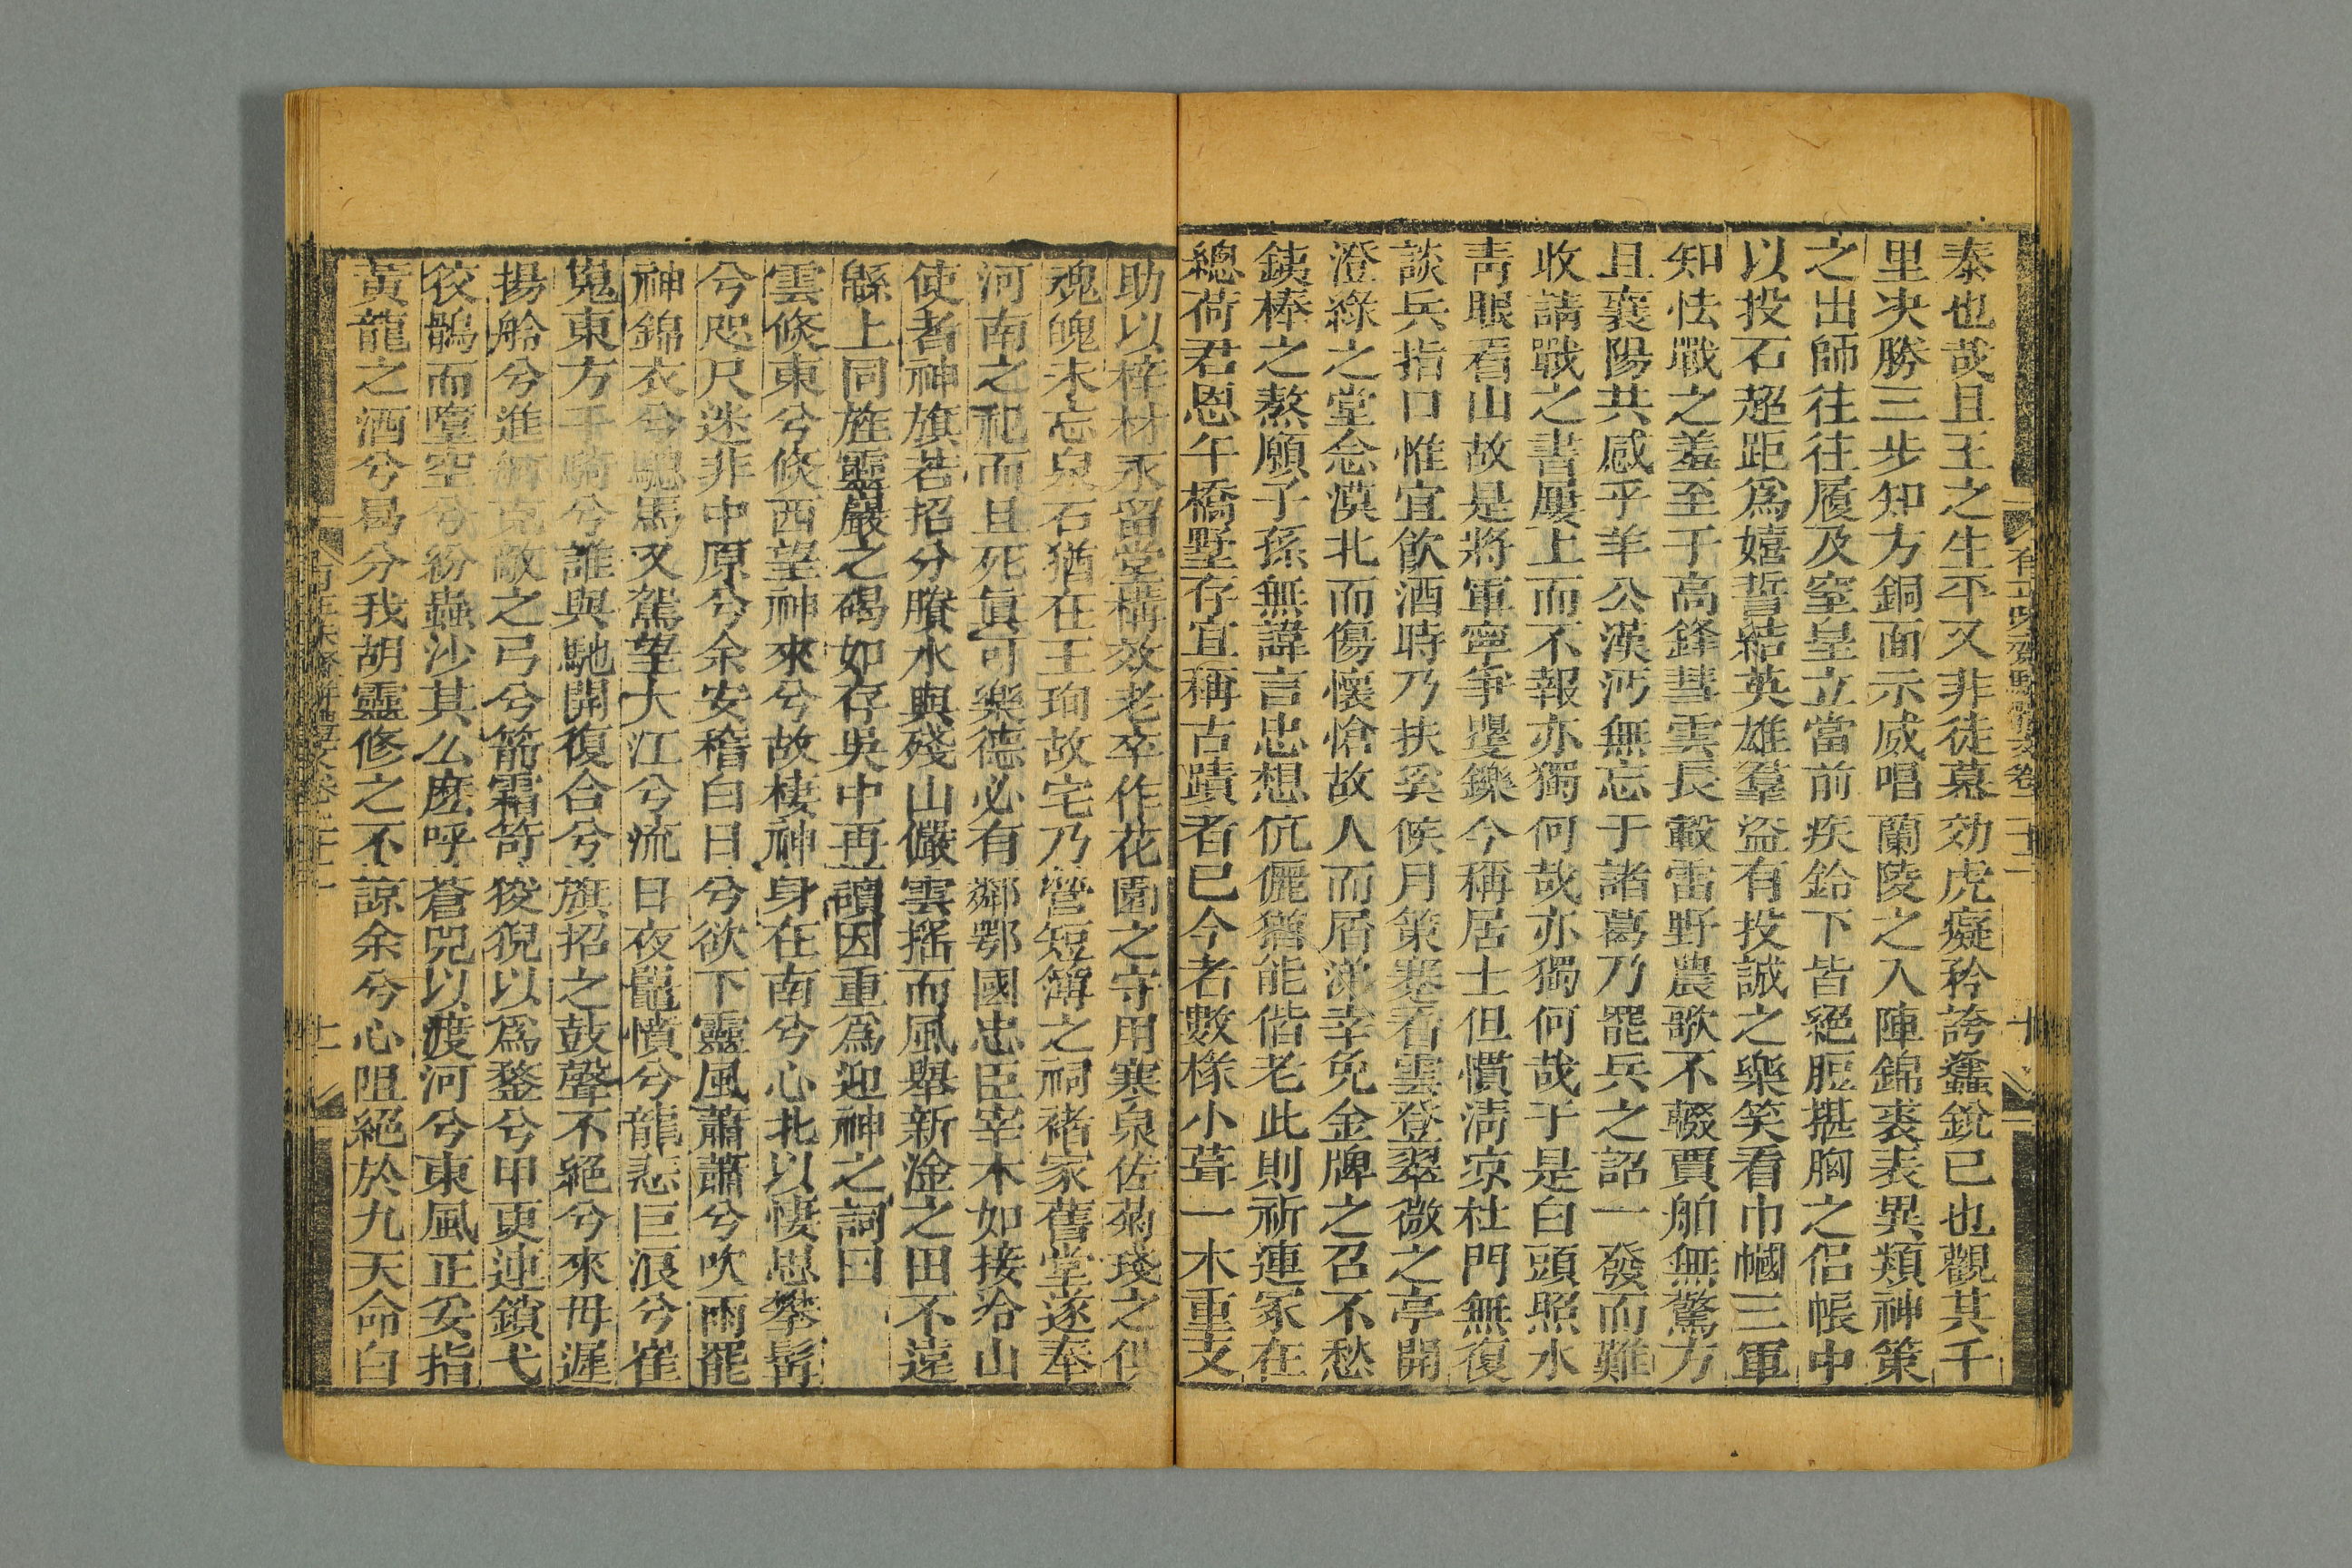 泰也哉且王之生平又非徒慕效虎癡矜誇蠭銳已也觀其千
里决勝三步知方銅面示威唱蘭陵之入陣錦裘表異類神策
之出師往往履及窒皇立當前疾鈴下皆絕脰揕胸之侶帳中
以投石超距爲嬉誓結英雄羣盜有投誠之樂笑看巾幗三軍
知怯戰之羞至于高鋒彗雲長轂雷野農歌不輟賈舶無驚方
且襄陽共感乎羊公漢沔無忘于諸葛乃罷兵之詔一發而難
收請戰之書屢上而不報亦獨何哉亦獨何哉于是白頭照水
靑眼看山故是將軍寧爭矍鑠今稱居士但慣淸凉杜門無復
談兵指口惟宜飮酒時乃扶奚候月策蹇看雲登翠微之亭開
澄綠之堂念漠北而傷懷愴故人而屑涕幸免金牌之召不愁
銕棒之熬願子孫無諱言忠想伉儷猶能偕老此則祈連冢在
總荷君恩午橋墅存宜稱古蹟者已今者數椽小葺一木重支
助以梓材永留堂構效老卒作花園之守用寒泉佐菊䔐之供
魂魄未忘泉石猶在王珣故宅乃營短簿之祠褚家舊堂遂奉
河南之祀而且死眞可樂德必有鄰鄂國忠臣宰木如接洽山
使者神旗若招分賸水與殘山儼雲搖而風舉新淦之田不遠
緜上同旌靈巖之碣如存吳中再讀因重爲迎神之詞曰
雲倏東兮倏西望神來兮故棲神身在南兮心北以悽思攀髯
兮咫尺迷非中原兮余安稽白日兮欲下靈風蕭蕭兮吹雨罷
神錦衣兮驄馬又駕望大江兮流日夜鼉憤兮龍悲巨浪兮崔
嵬東方千騎兮誰與馳開復合兮旗招之鼓聲不絕兮來毋遲
揚舲兮進舸克敵之弓兮箭霜笴狻猊以爲鍪兮甲更連鎖弋
铰鶻而墮空兮紛蟲沙其么麽呼蒼兕以渡河兮東風正妥指
黃龍之酒兮曷分我胡靈修之不諒余兮心阻絕於九天命白